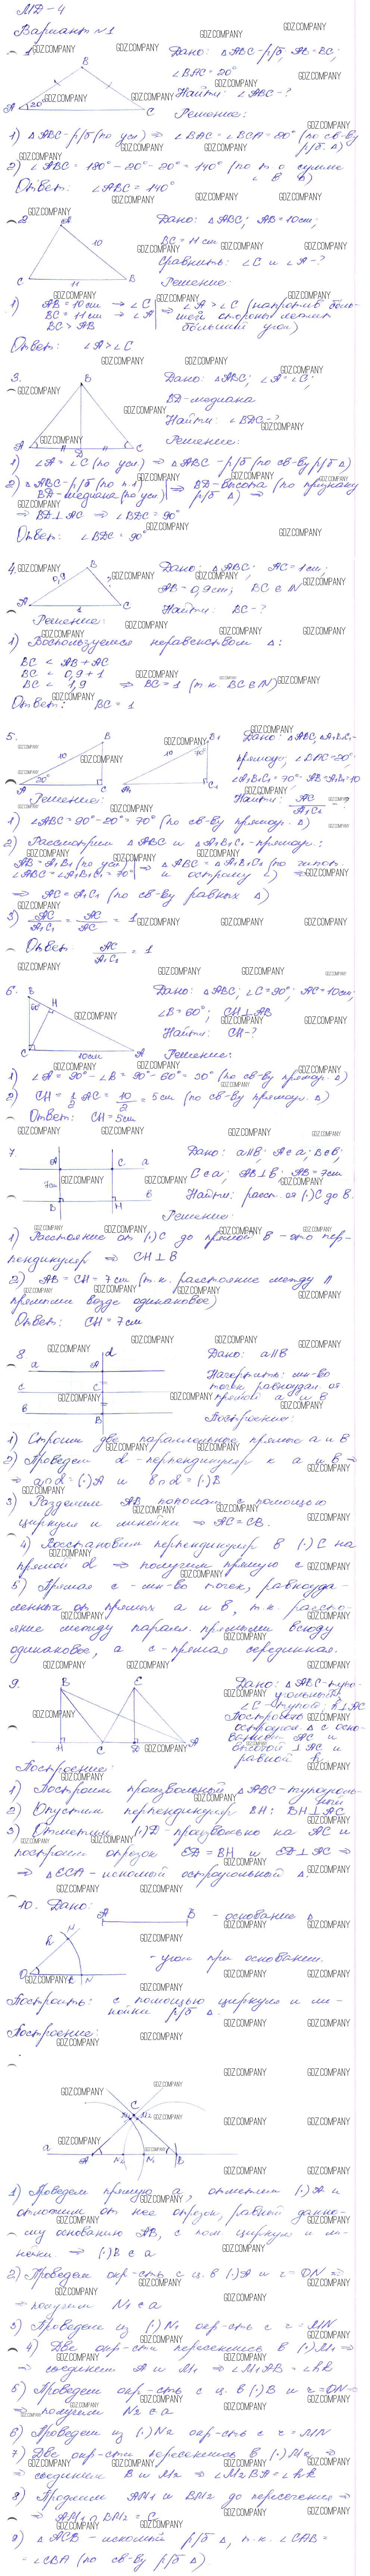 МД-4
Вариант №1
1. Дано: △ABC-р/б; AB=BC;
∠BAC=20°
Найти: ∠ABC-?
Решение:
1) △ABC-р/б (по усл) ⇒ ∠BAC=∠BCA=20° (по св-ву р/б △)
2) ∠ABC = 180°-20°-20°=140° (по т. о сумме ∠ в △)
Ответ: ∠ABC=140°
2. Дано: △ABC; AB=10см;
BC=11см
Сравнить: ∠C и ∠A-?
Решение:
1) AB=10см → ∠C
BC=11см → ∠A ⇒ ∠A>∠C (напротив боль-
BC>AB шей стороны лежит
больший угол)
Ответ: ∠A>∠C
3. Дано: △ABC; ∠A=∠C;
BD-медиана
Найти: ∠BDC-?
Решение:
1) ∠A=∠C (по усл) ⇒ △ABC-р/б (по св-ву р/б △)
2) △ABC-р/б (по п.1)
BD-медиана (по усл) ⇒ BD-высота (по признаку р/б △) ⇒
⇒ BD⊥AC ⇒ ∠BDC=90°
Ответ: ∠BDC=90°
4. Дано: △ABC; AC=1см;
AB=0,9см; BC∈N
Найти: BC-?
Решение:
1) Воспользуемся неравенством △:
BC < AB+AC
BC < 0,9+1
BC < 1,9 ⇒ BC=1 (т.к. BC∈N)
Ответ: BC=1
5. Дано: △ABC, △A₁B₁C₁-
прямоуг, ∠BAC=20°,
∠A₁B₁C₁=70° AB=A₁B₁=10
Найти: AC/A₁C₁ = ?
Решение:
1) ∠ABC=90°-20°=70° (по св-ву прямоуг. △)
2) Рассмотрим △ABC и △A₁B₁C₁-прямоуг.:
AB=A₁B₁ (по усл)
∠ABC=∠A₁B₁C₁=70° ⇒ △ABC=△A₁B₁C₁ (по гипот. и острому ∠) ⇒
⇒ AC=A₁C₁ (по св-ву равных △)
3) AC/A₁C₁ = AC/AC = 1
Ответ: AC/A₁C₁ = 1
6. Дано: △ABC; ∠C=90°; AC=10см;
∠B=60°; CH⊥AB
Найти: CH-?
Решение:
1) ∠A=90°-∠B=90°-60°=30° (по св-ву прямоуг. △)
2) CH=1/2 AC=10/2=5см (по св-ву прямоуг. △)
Ответ: CH=5см
7. Дано: a||b; A∈a; B∈b;
C∈a; AB⊥b; AB=7см
Найти: расст. от (·)C до b.
Решение:
1) Расстояние от (·)C до прямой b-это пер-
пендикуляр ⇒ CH⊥b
2) AB=CH=7см (т.к. расстояние между ||
прямыми везде одинаковое)
Ответ: CH=7см
8 Дано: a||b
Начертить: мн-во
точек равноудал от
прямой a и b
Построение:
1) Строим две параллельные прямые a и b
2) Проведем d-перпендикуляр к a и b ⇒
⇒ a∩d=(·)A и b∩d=(·)B
3) Разделим AB пополам с помощью
циркуля и линейки ⇒ AC=CB.
4) Восстановим перпендикуляр в (·)C на
прямой d ⇒ получим прямую c
5) Прямая c-мн-во точек, равноуда-
ленных от прямых a и b, т.к. рассто-
яние между паралл. прямыми всюду
одинаковое, а c-прямая серединная.
9. Дано: △ABC-тупо-
угольный
∠C-тупой; h⊥AC
Построить
остроугол. △ с осно-
ванием AC и
высотой ⊥AC и
равной h.
Построение:
1) Построим произвольный △ABC-тупоуголь-
ный
2) Опустим перпендикуляр BH: BH⊥AC
3) Отметим (·)D произвольно на AC и
построим отрезок ED=BH и ED⊥AC ⇒
⇒ △ECA-искомый остроугольный △.
10. Дано:
A B - основание △
- угол при основании.
Построить: с помощью циркуля и ли-
нейки р/б △.
Построение:
1) Проведем прямую a, отметим (·)A и
отложим от нее отрезок, равный данно-
му основанию AB, с пом. циркуля и ли-
нейки ⇒ (·)B∈a
2) Проведем окр-сть с ц. в (·)A и r=ON ⇒
⇒ получим N₁∈a
3) Проведем из (·)N₁ окр-сть с r=MN
4) Две окр-сти пересеклись в (·)M₁ ⇒
⇒ соединим A и M₁ ⇒ ∠M₁AB=∠hk
5) Проведем окр-сть с ц. в (·)B и r=ON ⇒
⇒ получим N₂∈a
6) Проведем из (·)N₂ окр-сть с r=MN
7) Две окр-сти пересеклись в (·)M₂ ⇒
⇒ соединим B и M₂ ⇒ ∠M₂BA=∠hk
8) Продлим AM₁ и BM₂ до пересечения ⇒
⇒ AM₁∩BM₂=C
9) △ACB-искомый р/б △, т.к. ∠CAB=
=∠CBA (по св-ву р/б △)